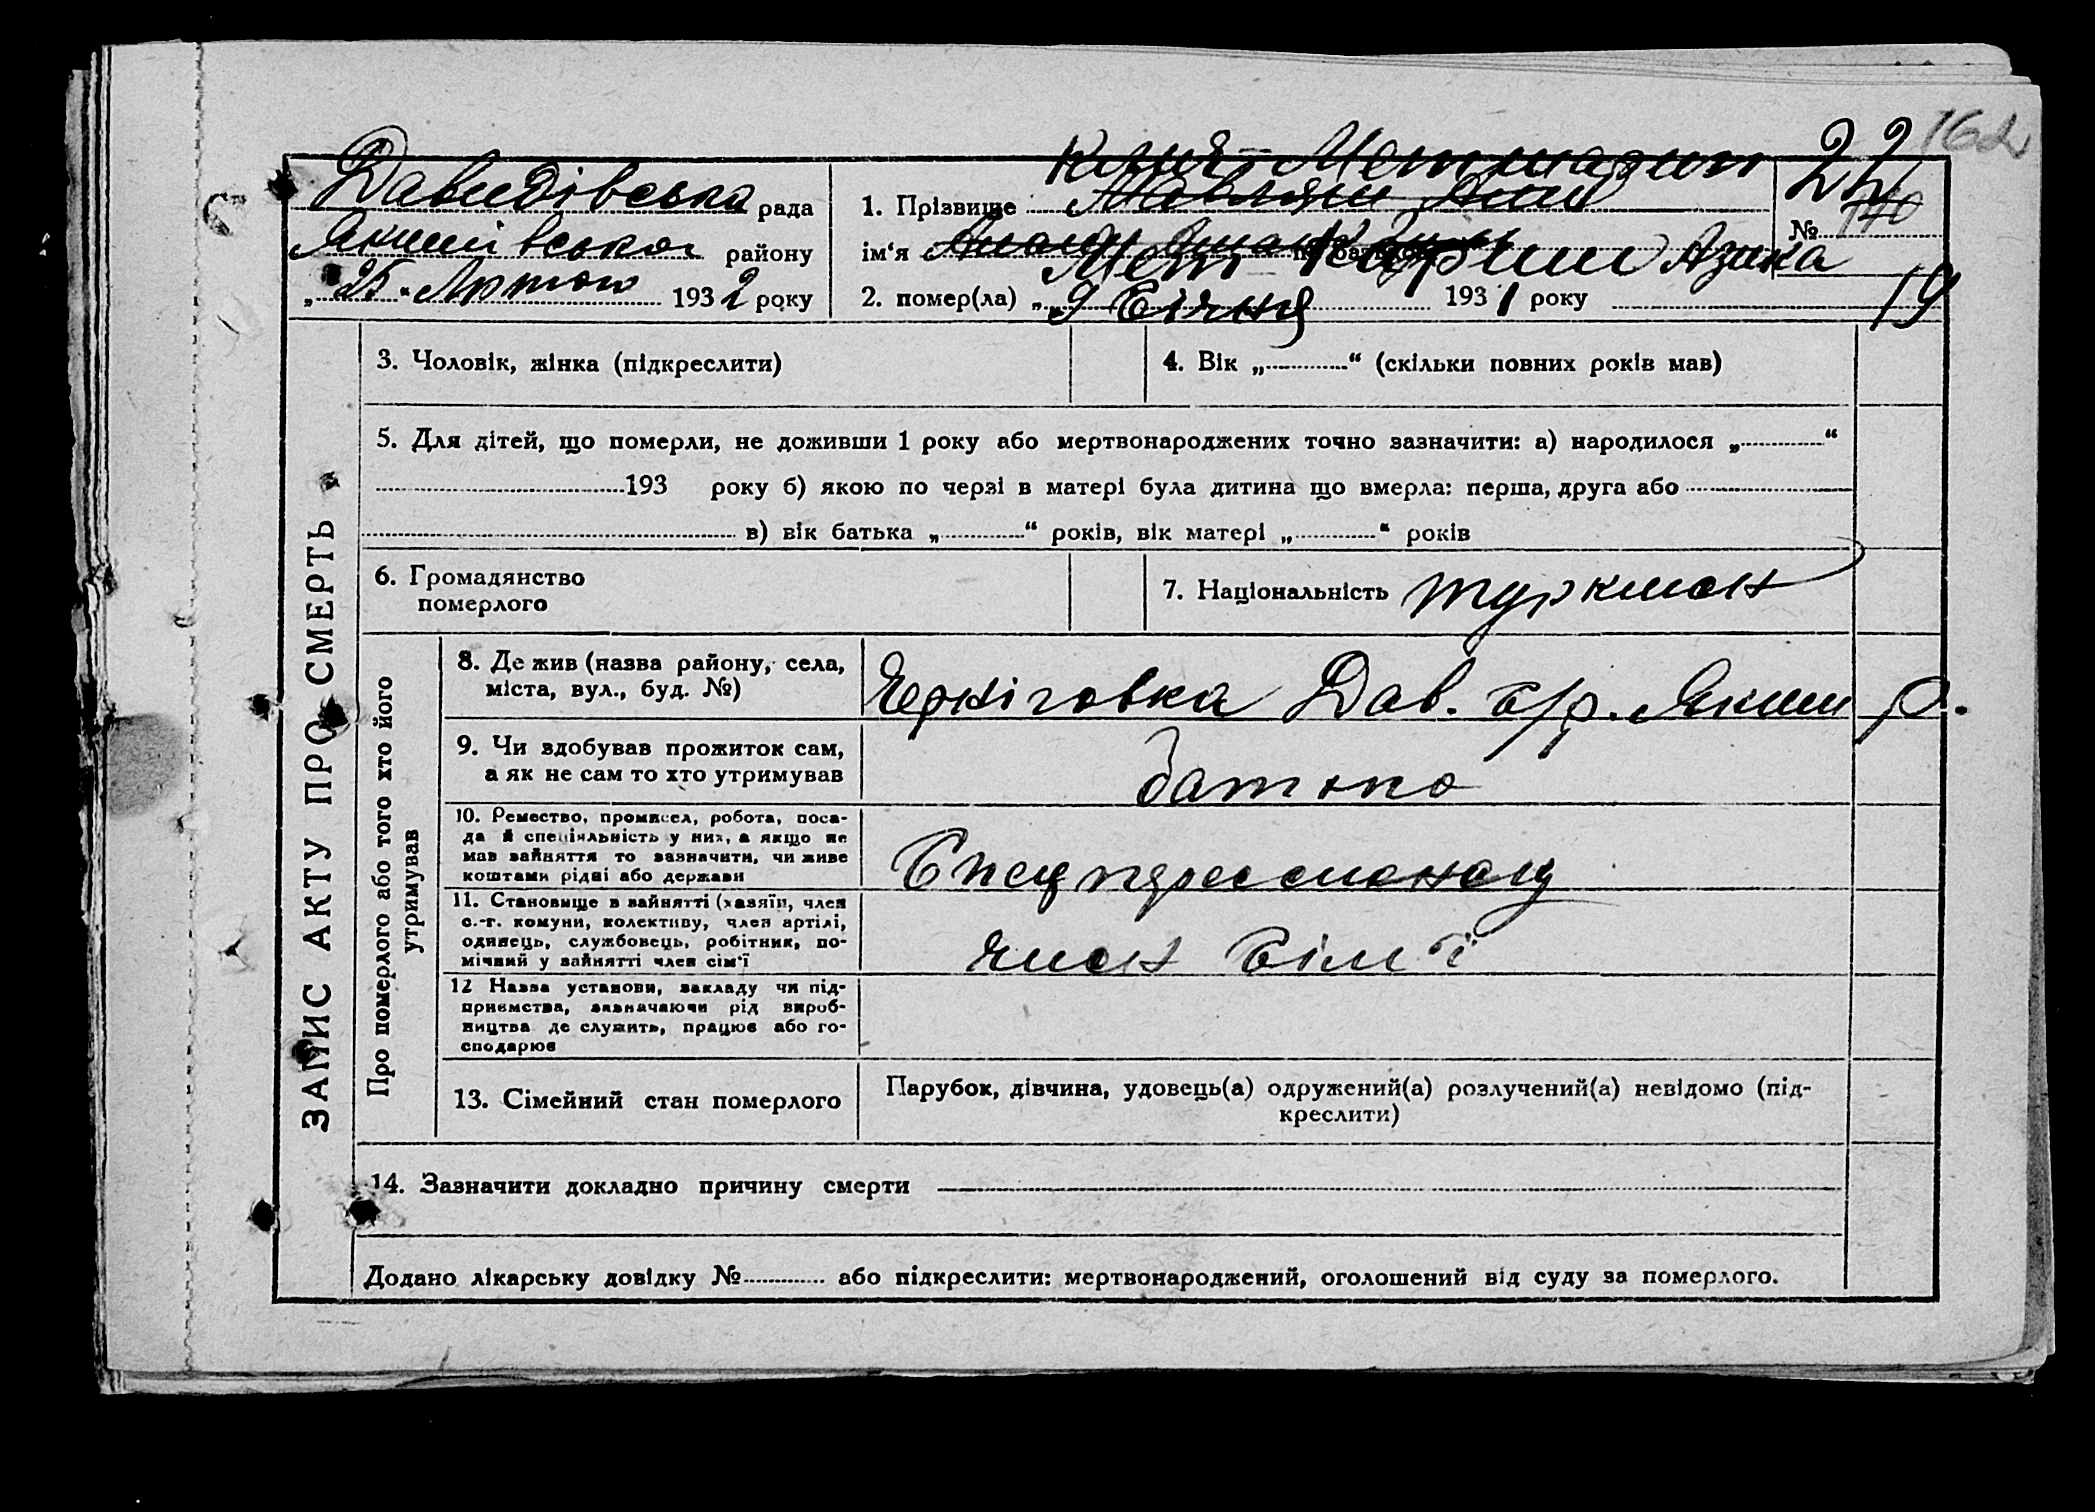 22 162
Давидівська рада
Якимівського району
„25“ Лютого 1932 року
1. Прізвище
№ 22 140
ім‘я по батькові
Мет Азика
2. помер(ла) „9 Січня 1931 року 19
ЗАПИС АКТУ ПРО СМЕРТЬ
3. Чоловік, жінка (підкреслити)
4. Вік „ “ (скільки повних років мав)
5. Для дітей, що померли, не доживши 1 року або мертвонароджених точно зазначити: а) народилося „ “
193 року б) якою по черзі в матері була дитина що вмерла: перша, друга або
в) вік батька „ “ років, вік матері „ “ років
6. Громадянство померлого
7. Національність туркмен
Про померлого або того хто його утримував
8. Де жив (назва району, села,
міста, вул., буд. №)
Черніговка Дав. с/р. Яким р.
9. Чи здобував прожиток сам,
а як не сам то хто утримував
батько
10. Ремество, промисел, робота, поса-
да й спеціяльність у них, а якщо не
мав зайняття то зазначити, чи живе
коштами рідні або держави
Спецпереселенец
11. Становище в зайнятті (хазяїн, член
с.-г. комуни, колективу, член артілі,
одинець, службовець, робітник, по-
мічний у зайнятті член сім‘ї
член сім‘ї
12 Назва установи, закладу чи під-
приємства, зазначаючи рід вироб-
ництва де служить, працює або го-
сподарює
13. Сімейний стан померлого
Парубок, дівчина, удовець(а) одружений(а) розлучений(а) невідомо (під-
креслити)
14. Зазначити докладно причину смерти
Додано лікарську довідку № або підкреслити: мертвонароджений, оголошений від суду за померлого.